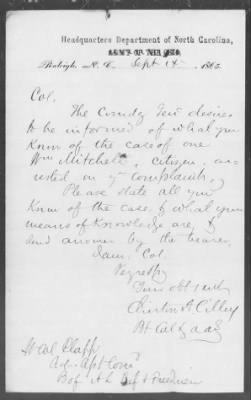 Headquarters Department of North Carolina,
ARMY OF THE OHIO,
Raleigh, N. C. Sept 14 1865
Col.
The Comdg Genl desires
to be informed of what you
know of the case of one
Wm Mitchell, citizen, ar-
rested on yr complaint.
Please state all you
know of the case, & what your
means of knowledge are, &
send answer by the bearer.
I am, Col.
Very resp
Your obt servt
Clinton A. Cilley
Bt Col & a a g
Lt Col Clapp
Bof R. &